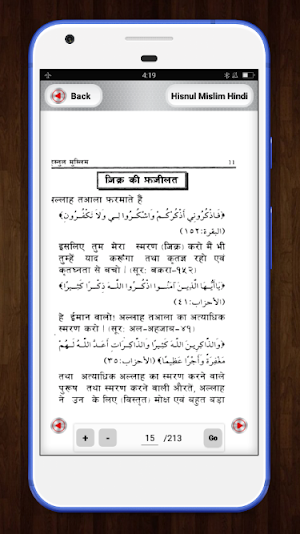 4:19
Back
Hisnul Mislim Hindi
हस्नुल मुस्लिम ११
ज़िक्र की फ़ज़ीलत
ल्लाह तआला फरमाते हैं
﴿فَاذْكُرُونِي أَذْكُرْكُمْ وَاشْكُرُوا لِي وَلَا تَكْفُرُونِ﴾
(البقرة:١٥٢)
इसलिए तुम मेरा स्मरण (जिक्र) करो मैं भी
तुम्हें याद करूँगा तथा कृतज्ञ रहो एवं
कृतघ्नता से बचो। (सूर: बकरा-१५२)
﴿يَا أَيُّهَا الَّذِينَ آمَنُوا اذْكُرُوا اللَّهَ ذِكْرًا كَثِيرًا﴾
(الأحزاب:٤١)
हे ईमान वालो! अल्लाह तआला का अत्याधिक
स्मरण करो। (सूर: अल-अहज़ाब-४१)
﴿وَالذَّاكِرِينَ اللَّهَ كَثِيرًا وَالذَّاكِرَاتِ أَعَدَّ اللَّهُ لَهُمْ
مَغْفِرَةً وَأَجْرًا عَظِيمًا﴾ (الأحزاب:٣٥)
तथा अत्याधिक अल्लाह का स्मरण करने वाले
पुरूष तथा स्मरण करने वाली औरतें, अल्लाह
ने उन के लिए (विस्तृत) मोक्ष एवं बहुत बड़ा
+ - 15 /213 Go